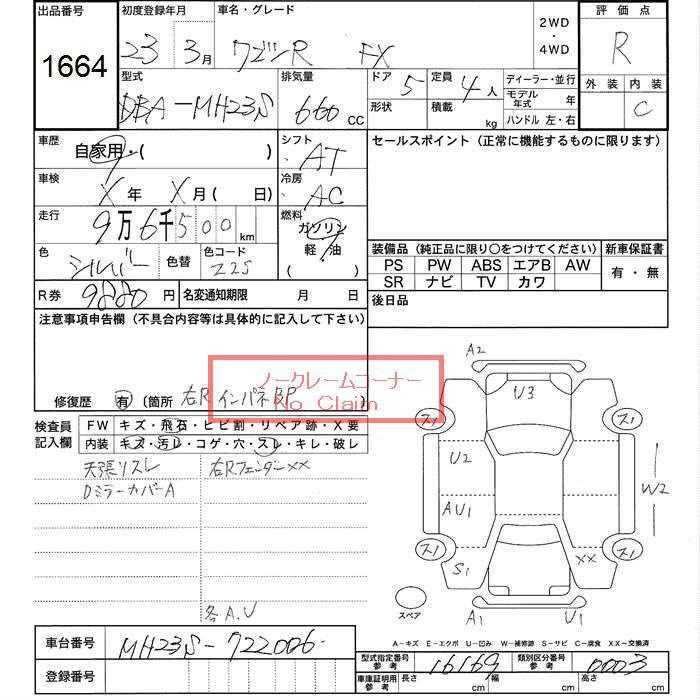 出品番号 初度登録年月 車名・グレード 2WD・4WD 評価点
1664 23 3月 ワゴンR FX R
型式 排気量 ドア 5 定員 4人 ディーラー・並行 外装 内装
DBA-MH23S 660 CC 形状 積載 kg モデル年式 年 C
ハンドル 左・右
車歴 自家用・( ) シフト AT セールスポイント(正常に機能するものに限ります)
車検 X年 X月( 日) 冷房 AC
走行 9万6千500km 燃料 ガソリン
軽・油
色 シルバー 色替 色コード Z2S 装備品(純正品に限り○をつけてください) 新車保証書
PS PW ABS エアB AW 有・無
SR ナビ TV カワ
R券 9880円 名変通知期限 月 日 後日品
注意事項申告欄(不具合内容等は具体的に記入して下さい)
ノークレームコーナー
No Claim
修復歴 有 (箇所 右Rインパネ BP )
検査員記入欄 FW キズ・飛石・ヒビ割・リペア跡・X要
内装 キズ・汚レ・コゲ・穴・スレ・キレ・破レ
天張リスレ 右Rフェンダーxx
DミラーカバーA
各A.U
A2
U3
ス1 ス1
U2
W2
AU1
ス1 ス1
S1 xx
スペア A1 U1
A-キズ E-エクボ U-凹み W-補修跡 S-サビ C-腐食 XX-交換済
車台番号 MH23S-722006
型式指定番号 参考 16169 類別区分番号 参考 0003
登録番号 車庫証明用 参考 長さ cm 幅 cm 高さ cm